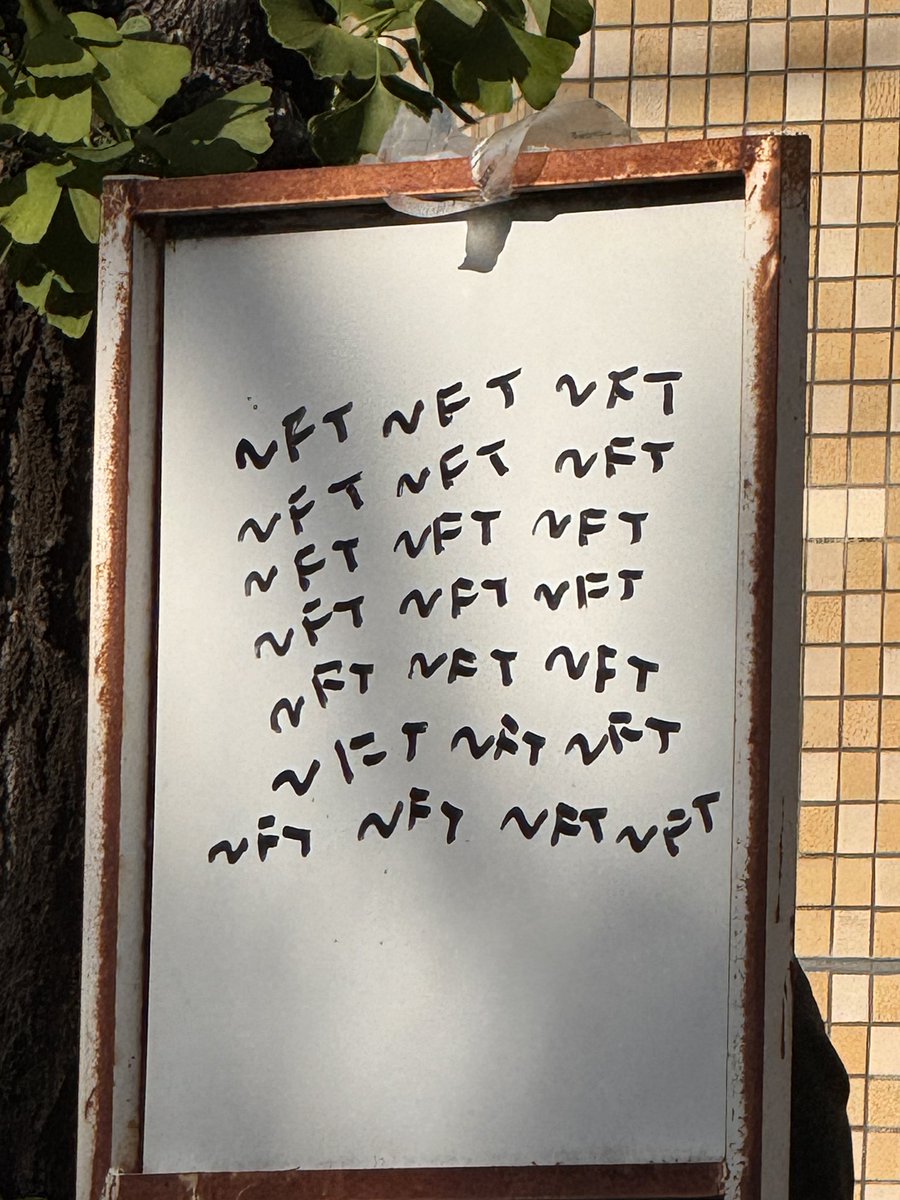 NFT NFT NFT
NFT NFT NFT
NFT NFT NFT
NFT NFT NFT
NFT NFT NFT
NFT NFT NFT
NFT NFT NFT NFT